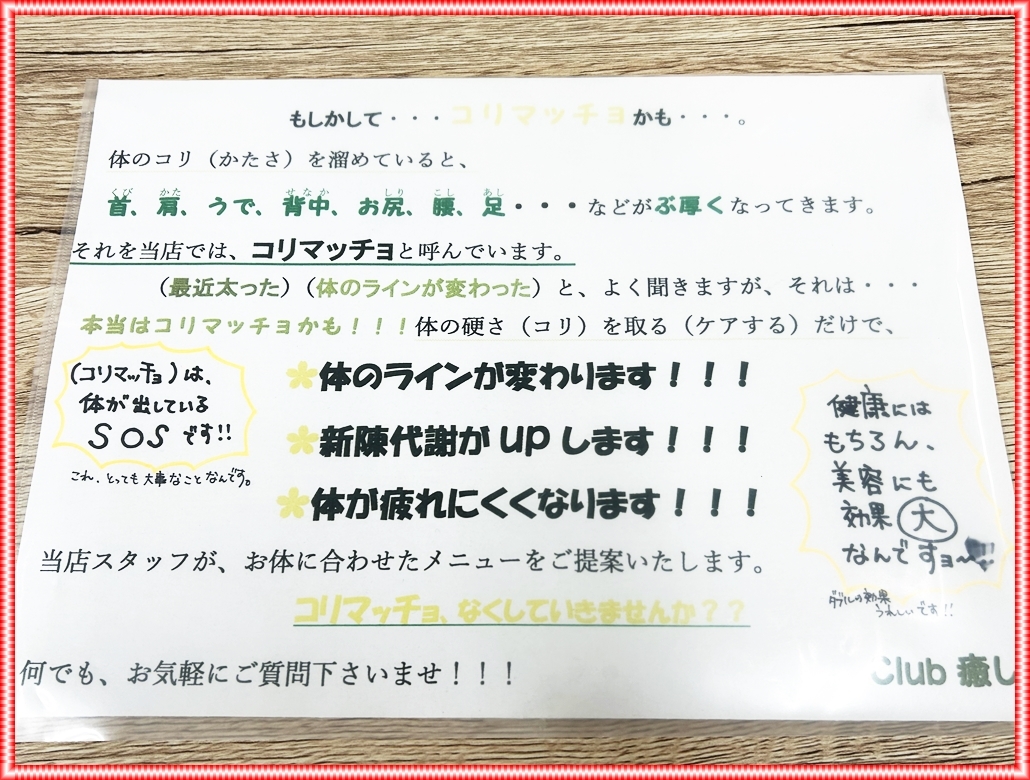 もしかして・・・コリマッチョかも・・・。
体のコリ（かたさ）を溜めていると、
くび かた せなか しり こし あし
首、肩、うで、背中、お尻、腰、足・・・などがぶ厚くなってきます。
それを当店では、コリマッチョと呼んでいます。
（最近太った）（体のラインが変わった）と、よく聞きますが、それは・・・
本当はコリマッチョかも！！！体の硬さ（コリ）を取る（ケアする）だけで、
(コリマッチョ)は、
体が出している
SOSです!!
これ、とっても大事なことなんです。
＊体のラインが変わります！！！
＊新陳代謝がupします！！！
＊体が疲れにくくなります！！！
健康には
もちろん、
美容にも
効果大
なんですョ〜
ダブルの効果
うれしいです!!
当店スタッフが、お体に合わせたメニューをご提案いたします。
コリマッチョ、なくしていきませんか？？
何でも、お気軽にご質問下さいませ！！！
Club 癒し